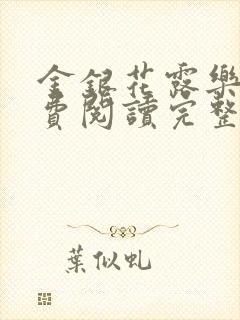 金銀花露樂
費閱讀完整
葉似虬